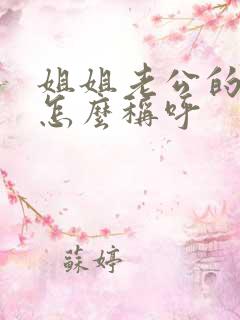 姐姐老公的
怎麼稱呼
蘇婷